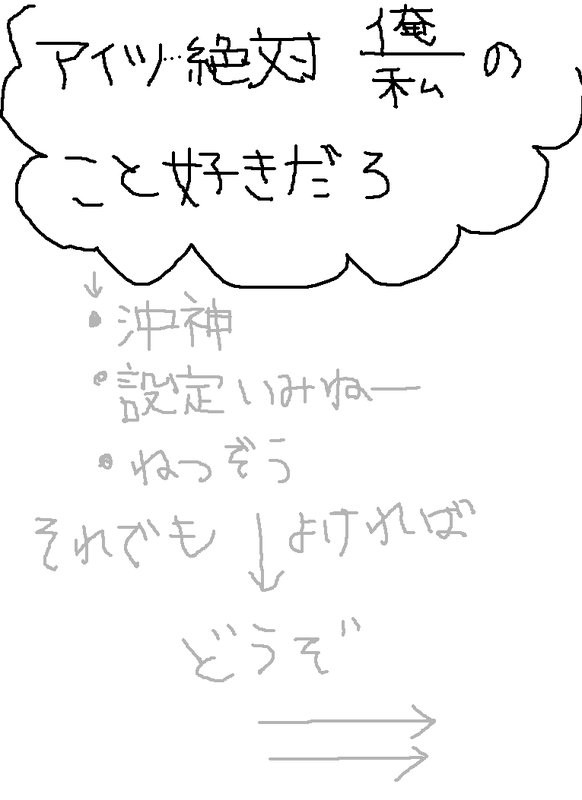 アイツ…絶対 俺/私 の
こと好きだろ
↓
・沖神
・設定いみねー
・ねつぞう
それでも ↓ よければ
どうぞ
→
→